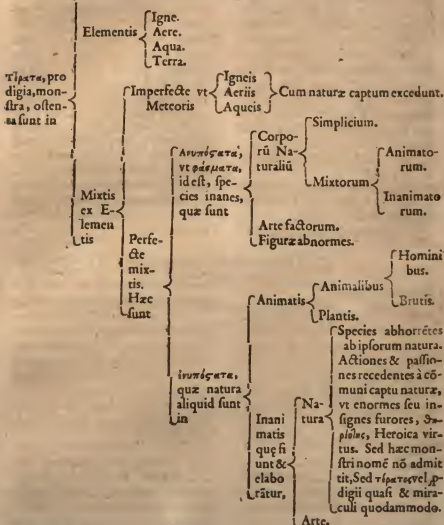 Τέρατα, pro
digia, mon-
stra, osten-
sa sunt in
Elementis
Igne.
Aere.
Aqua.
Terra.
Mixtis
ex E-
lemen
tis
Imperfecte vt
Meteoris
Igneis
Aeriis
Aqueis
Cum naturæ captum excedunt.
Perfe-
cte
mix-
tis.
Hæc
sunt
Ανυπόςατα,
vt φάσματα,
id est, spe-
cies inanes,
quæ sunt
Corpo-
rū Na-
turaliū
Simplicium.
Mixtorum
Animato-
rum.
Inanimato
rum.
Arte factorum.
Figuræ abnormes.
ἐνυπόςατα,
quæ natura
aliquid sunt
in
Animatis
Animalibus
Homini
bus.
Brutis.
Plantis.
Inani
matis
quę fi
unt &
elabo
rātur,
Na-
tura
Species abhorrētes
ab ipsorum natura.
Actiones & passio-
nes recedentes à cō-
muni captu naturæ,
vt enormes seu in-
signes furores, θη-
ριότης, Heroica vir-
tus. Sed hæc mon-
stri nomē nō admit
tit, Sed τέρατος vel p-
digii quasi & mira-
culi quodammodo.
Arte.